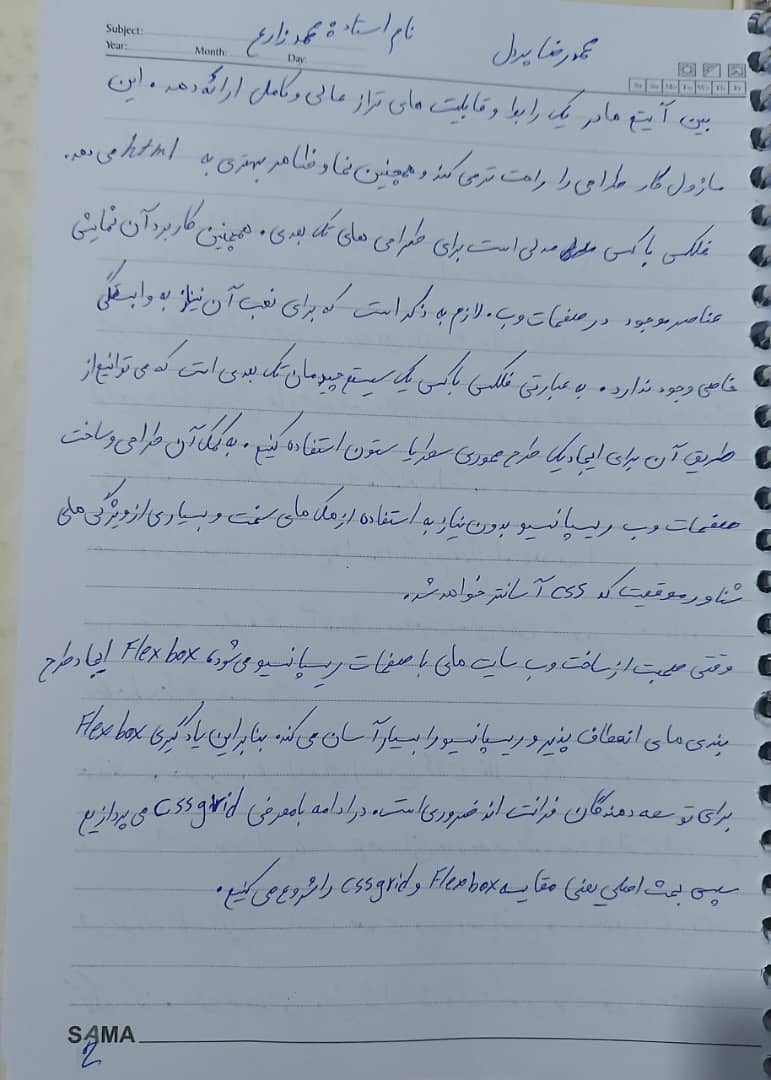 Subject:
Year: Month: Day:
محمدرضا پردل نام استاد: محمد زارع
Sa Su Mo Tu We Th Fr
بین آیتم ها در یک رابط و قابلیت های تراز عالی و کامل ارائه دهد. این
ماژول کار طراحی را راحت تر می کند و همچنین نما و ظاهر بهتری به html می دهد.
فلکس باکس مدلی است برای طراحی های تک بعدی. همچنین کاربرد آن نمایش
عناصر موجود در صفحات وب. لازم به ذکر است که برای نصب آن نیاز به وابستگی
خاصی وجود ندارد. به عبارتی فلکس باکس یک سیستم چیدمان تک بعدی است که می توانیم از
طریق آن برای ایجاد یک طرح محوری سطر یا ستون استفاده کنیم. به کمک آن طراحی و ساخت
صفحات وب ریسپانسیو بدون نیاز به استفاده از هک های سخت و بسیاری از ویژگی های
شناور موقعیت کد css آسانتر خواهد شد.
وقتی صحبت از ساخت وب سایت هایی با صفحات ریسپانسیو می شود، Flex box ایجاد طرح
بندی های انعطاف پذیر و ریسپانسیو را بسیار آسان می کند. بنابراین یادگیری Flex box
برای توسعه دهندگان فرانت اند ضروری است. در ادامه با معرفی css grid می پردازیم
سپس بحث اصلی یعنی مقایسه Flex box و css grid را شروع می کنیم.
SAMA
2